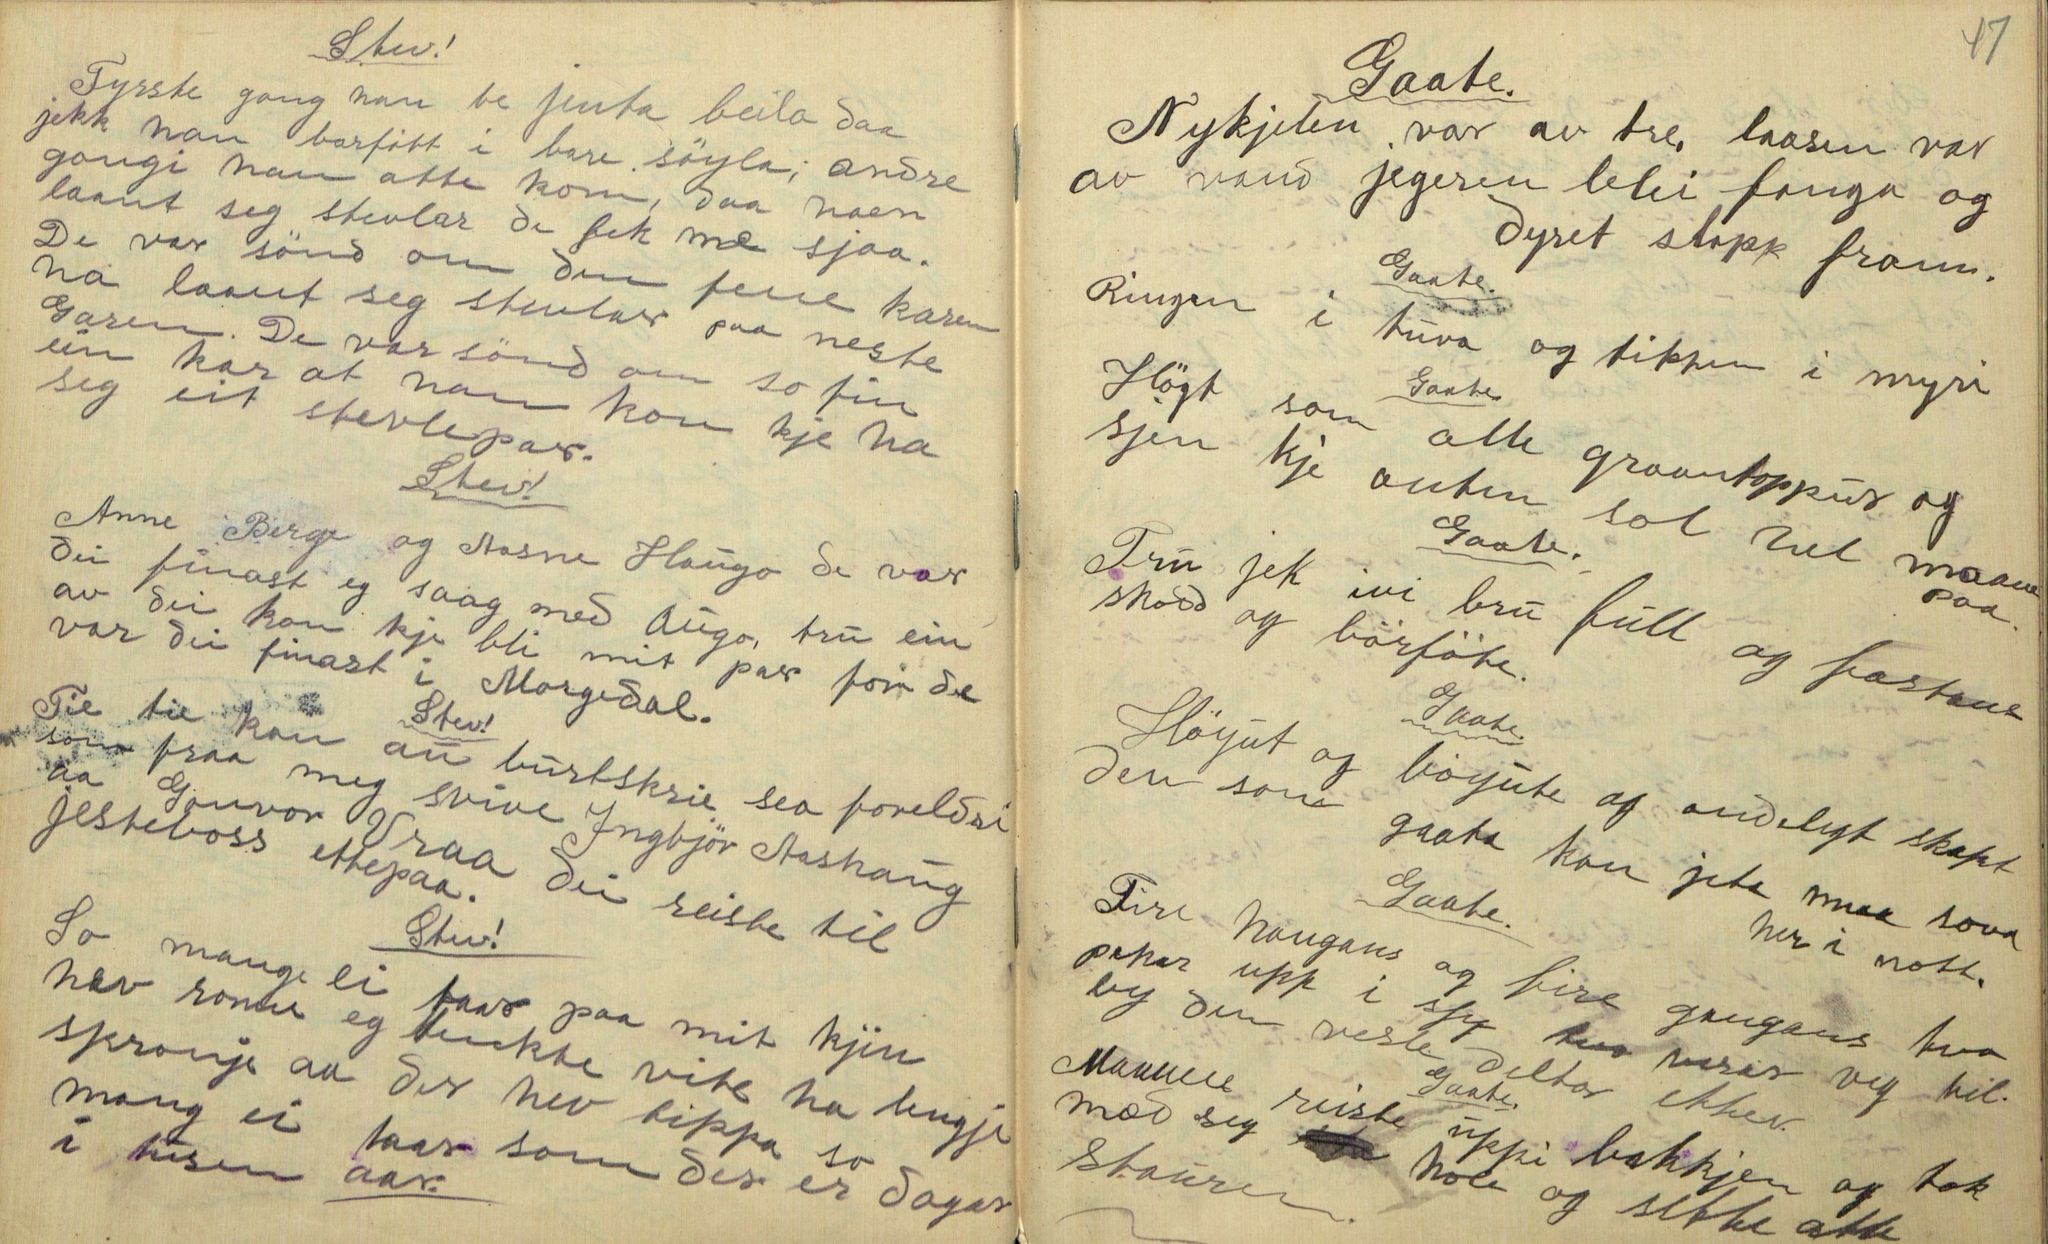 Stev!
Fyrste gong han te jenta beila daa
jekk han barfött i bare söyla; andre
gongi han atte kom, daa haen
laant seg stevlar de fek me sjaa.
De var sönd om den fene karen
ha laant seg stevlar paa neste
Garen. De var sönd om so fin
ein kar at han kon kje ha
seg eit stevlepar.
Stev!
Anne Berge og Aasne Haugo de var
dei finast eg saag med Augo, tru ein
av dei kan kje bli mit par foir de
var dei finast i Morgedal.
Stev!
Tie tie kan au burtskrie sea foreldri
som fraa meg svive Ingbjör Aashaug
aa Gonvor Vraa dei reiste til
jesteboss ettepaa.
Stev!
So mange ei taar paa mit kjin
hev ronne eg tenkte vite ha lengje
spronje aa der hev tippa so
mang ei taar som der er dagar
i tusen aar.
17
Gaate.
Nykjelen var av tre, laasen var
av vand jegeren lei fanga og
dyret slapp fram.
Gaate.
Ringen i tuva og tikpen i myri
Gaate
Högt som alle graantoppur og
sjen kje anten sol hel maane
paa.
Gaate.
Fru jek ivi bru full og fastans
skodd og börföte.
Gaate.
Höyut og böyute og undeligt skapt
den som gaata kan jeta maa sova
her i nott.
Gaate.
Fire hangans og fire gangans tvo
peker upp i sky tvo viser veg til
by den vesle deltar etter.
Gaate.
Mannen reiste uppi bakkjen og tok
med seg hole og sette atte
Stauren.